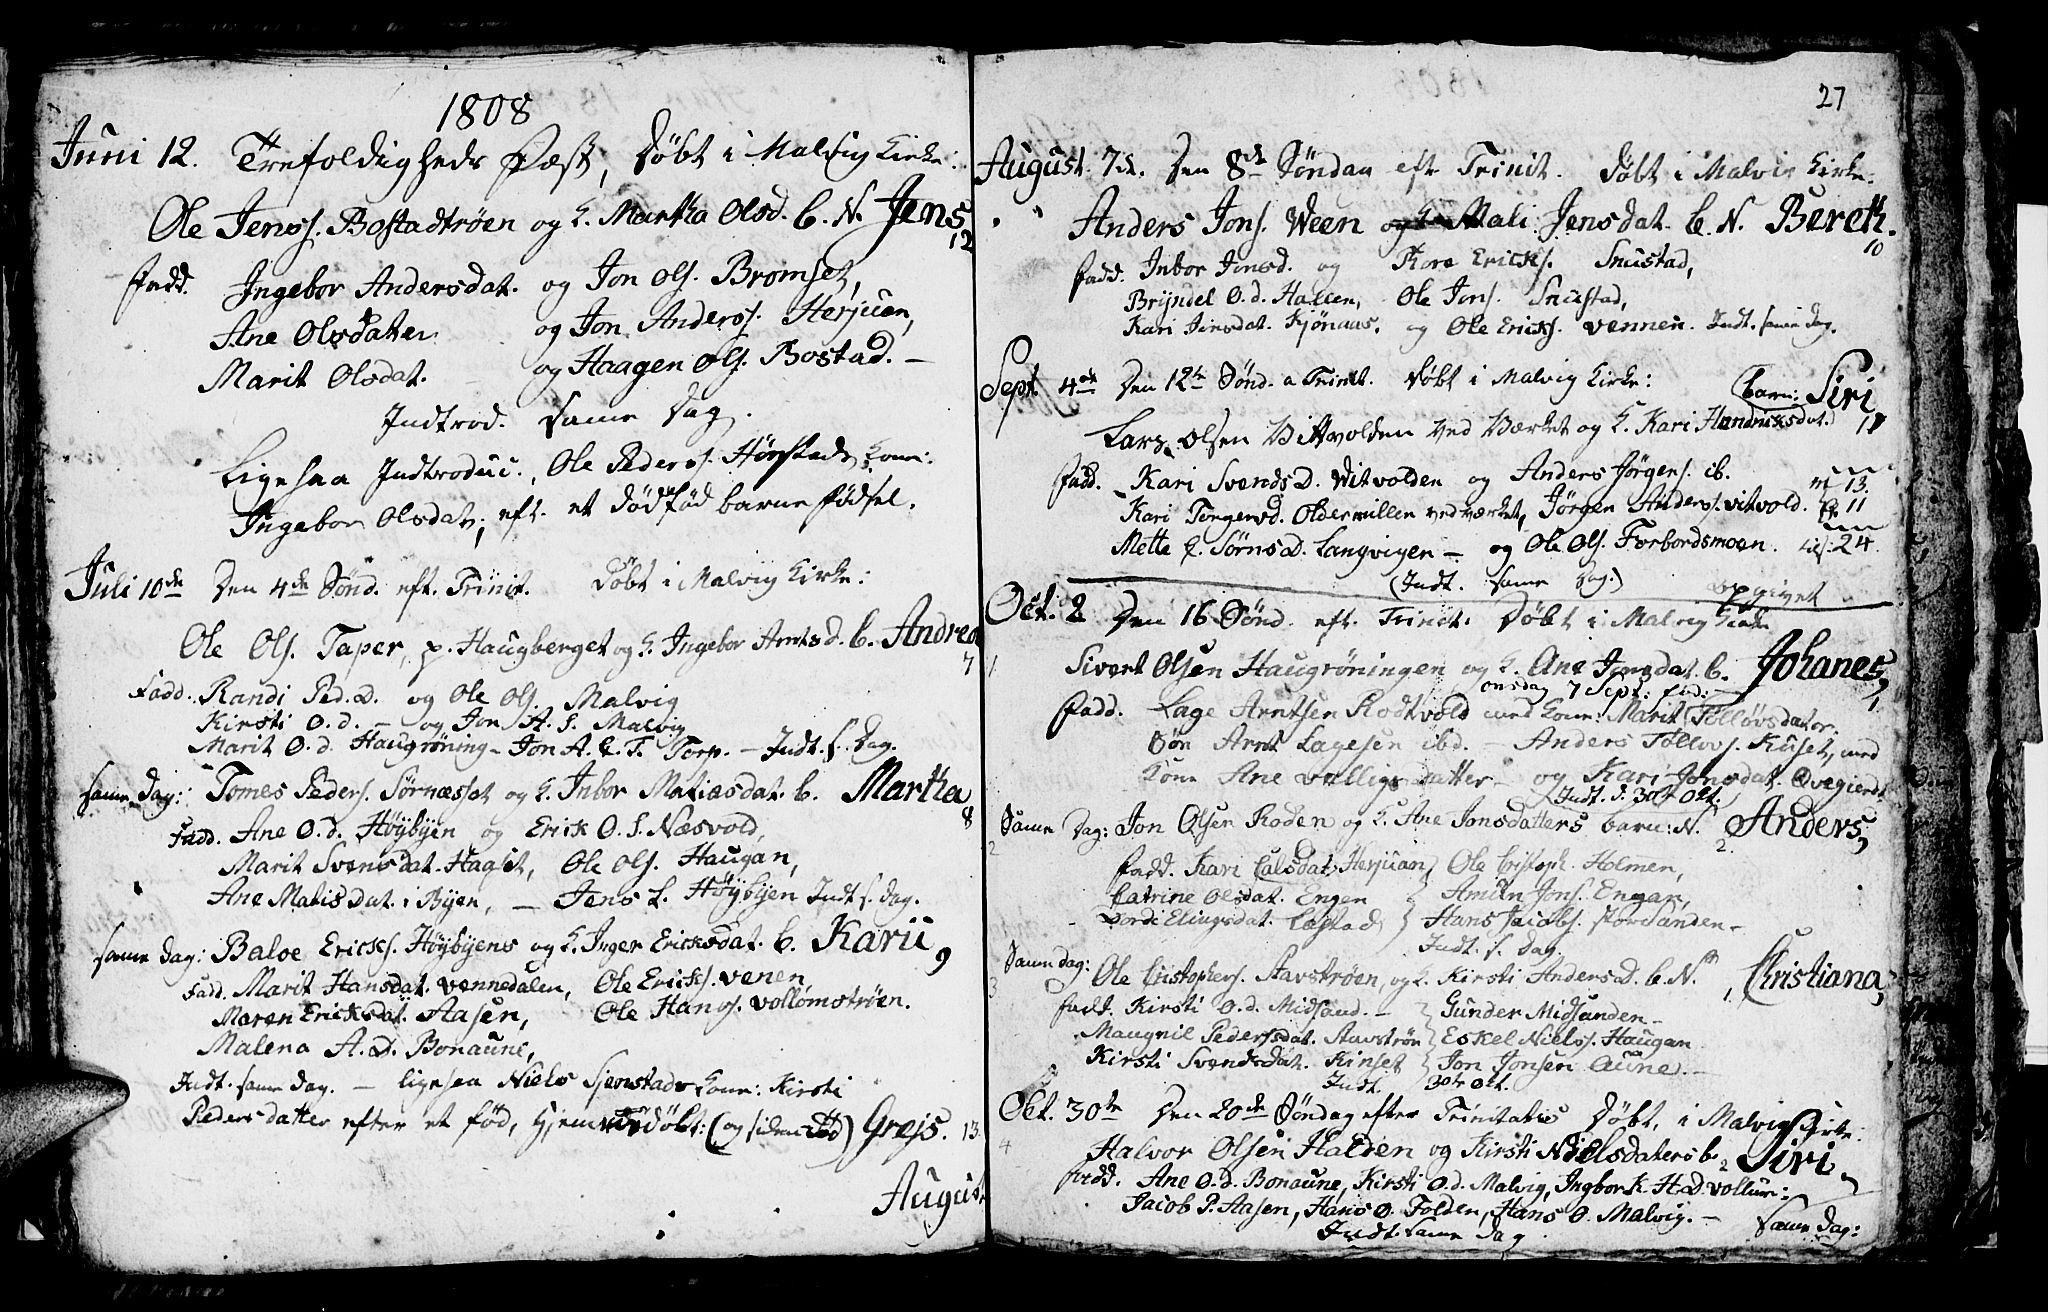 1808
Juni 12. Trefoldigheds Fæst, Døbt i Malvig Kirke:
Ole Jenss. Bostadtrøen og H. Martha Olsd. b. N. Jens,
12
Fadd. Ingebor Andersdat. og Jon Ols. Bromset,
Ane Olsdatter og Jon Anderss. Herjuan,
Marit Olsdat. og Haagen Ols. Bostad. —
Indtrod. same Dag.
Ligesaa Introduc. Ole Pederss. Hørstads Kone:
Ingebor Olsdat, eft. et dødfød barns fødsel.
Juli 10de Den 4de Sønd. eft. Trinit. Døbt i Malvig Kirke:
Ole Ols. Taper, p. Haugberget og H. Ingebor Arntsd. b. Andrea
7
Fadd. Randi Ped. D. og Ole Ols. Malvig
Kirsti O. d. — og Jon A. S. Malvig
Marit O. d. Haugrøning — Jon A. Torp. — Indt. s. Dag.
same Dag: Tomes Peders. Sørnæsset og H. Inbor Matiasdat. b. Martha
8
Fadd. Ane O. d. Høybyen og Erick O. S. Næsvold,
Marit Svensdat. Hagset, Ole Ols. Haugan,
Ane Matisdat. i Byen, — Jens L. Høybyen Indt s. dag.
same Dag: Baloe Ericks. Høybyens og H. Inger Ericksdat. b. Karii
9
Fadd. Marit Hansdat. Vennedalen, Ole Ericks. Venen
Maren Ericksdat. Aasen, Ole Hans. Vollomstrøen.
Malena A. D. Bonaune,
Indt. same dag. — ligesaa Niels Sjenstads Kone: Kirsti
Pedersdatter efter et fød, hjemedøbt: (og siden død) Grejs. 13
August
27
August. 7de. Den 8de Søndag eft. Trinit. Døbt i Malvig Kirke.
Anders Jons. Ween og Mali Jensdat. b. N. Bereth.
10
Fadd. Inbor Jonsd. og Tore Ericks. Snustad,
Bryndel O. d. Hallen, Ole Jons. Snustad,
Kari Jonsdat. Kjønaas, og Ole Ericks. Vennen. Indt. same dag.
Sept. 4de Den 12te Sønd. a Trinit. Døbt i Malvig Kirke: barn: Siri
11
Lars Olsen Vitvolden ved Værket og H. Kari Hendriksdat.
Fadd. Kari Svends D. Witvolden og Anders Jørgens. ib. m 13.
Kari Tongersd. Oldermillen ved værket, Jørgen Anders. Vitvold. 11
Mette Sørns D. Langvigen — og Ole Ols. Forbordsmoen. 24.
(Indt. same Dag.) opgivet
Oct. 2 Den 16 Sønd. eft. Trinit. Døbt i Malvig Kirke
1 Sivert Olsen Haugrøningen og H. Ane Jonsdat. b. Johanes,
1
onsdag 7 Sept: fød:
Fadd. Lage Arntsen Rodtvold med Kone: Marit Tølløvsdater.
Søn Arnt Lagesen ibd. — Anders Tøllovs. Kuset, med
Kone Ane datter — og Kari Jonsdat. Øvegierdt
Indt. d. 30te Oct.
Same Dag: Jon Olsen Roden og H. Ane Jonsdatters barn: N. Anders,
2 2.
Fadd. Kari Calsdat. Herjuan, Ole Cristoph. Holmen,
Catrine Olsdat. Engen Amun Jons. Engan,
Dordi Elingsdat. Lostad Hans Jacobs. Storsanden —
Indt. s. dag.
Same dag: Ole Cristophers. Stavstrøen, og H. Kirsti Anders D. b. N. Christiana,
3 1.
Fadd. Kirsti O. d. Midsand. — Gunder Midsanden —
Maugnil Pedersdat. Stavstrøn Eskel Niels. Haugan
Kirsti Svendsdat. Kinset Jon Jonsen Aune. —
Indt. 30te Oct.
Oct. 30te Den 20de Søndag efter Trinitatis Døbt, i Malvig Kirke:
4 Halvor Olsen Halden og Kirsti Nielsdaters b. 2 Siri
Fadd. Ane O. d. Bonaune, Kirsti O. d. Malvig, Ingbor K. H. D. Vollum:
Jacob P. Aasen, Hans O. Folden, Hans O. Malvig. —
Indt. same Dag. Same Dag: